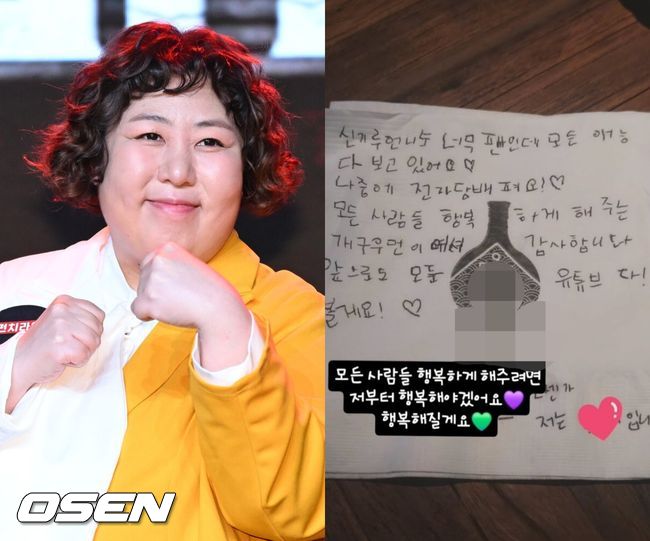 편치라
OSEN
신기루언니 너무 팬인데 모든 예능
다 보고 있어요♡
나중에 전자담배 펴요!♡
모든 사람들 행복 하게 해 주는
개구우먼이여서 감사합니다
앞으로도 모둔 유튜브 다!
볼게요! ♡
모든 사람들 행복하게 해주려면
저부터 행복해야겠어요💜
행복해질게요💚
저는 입니